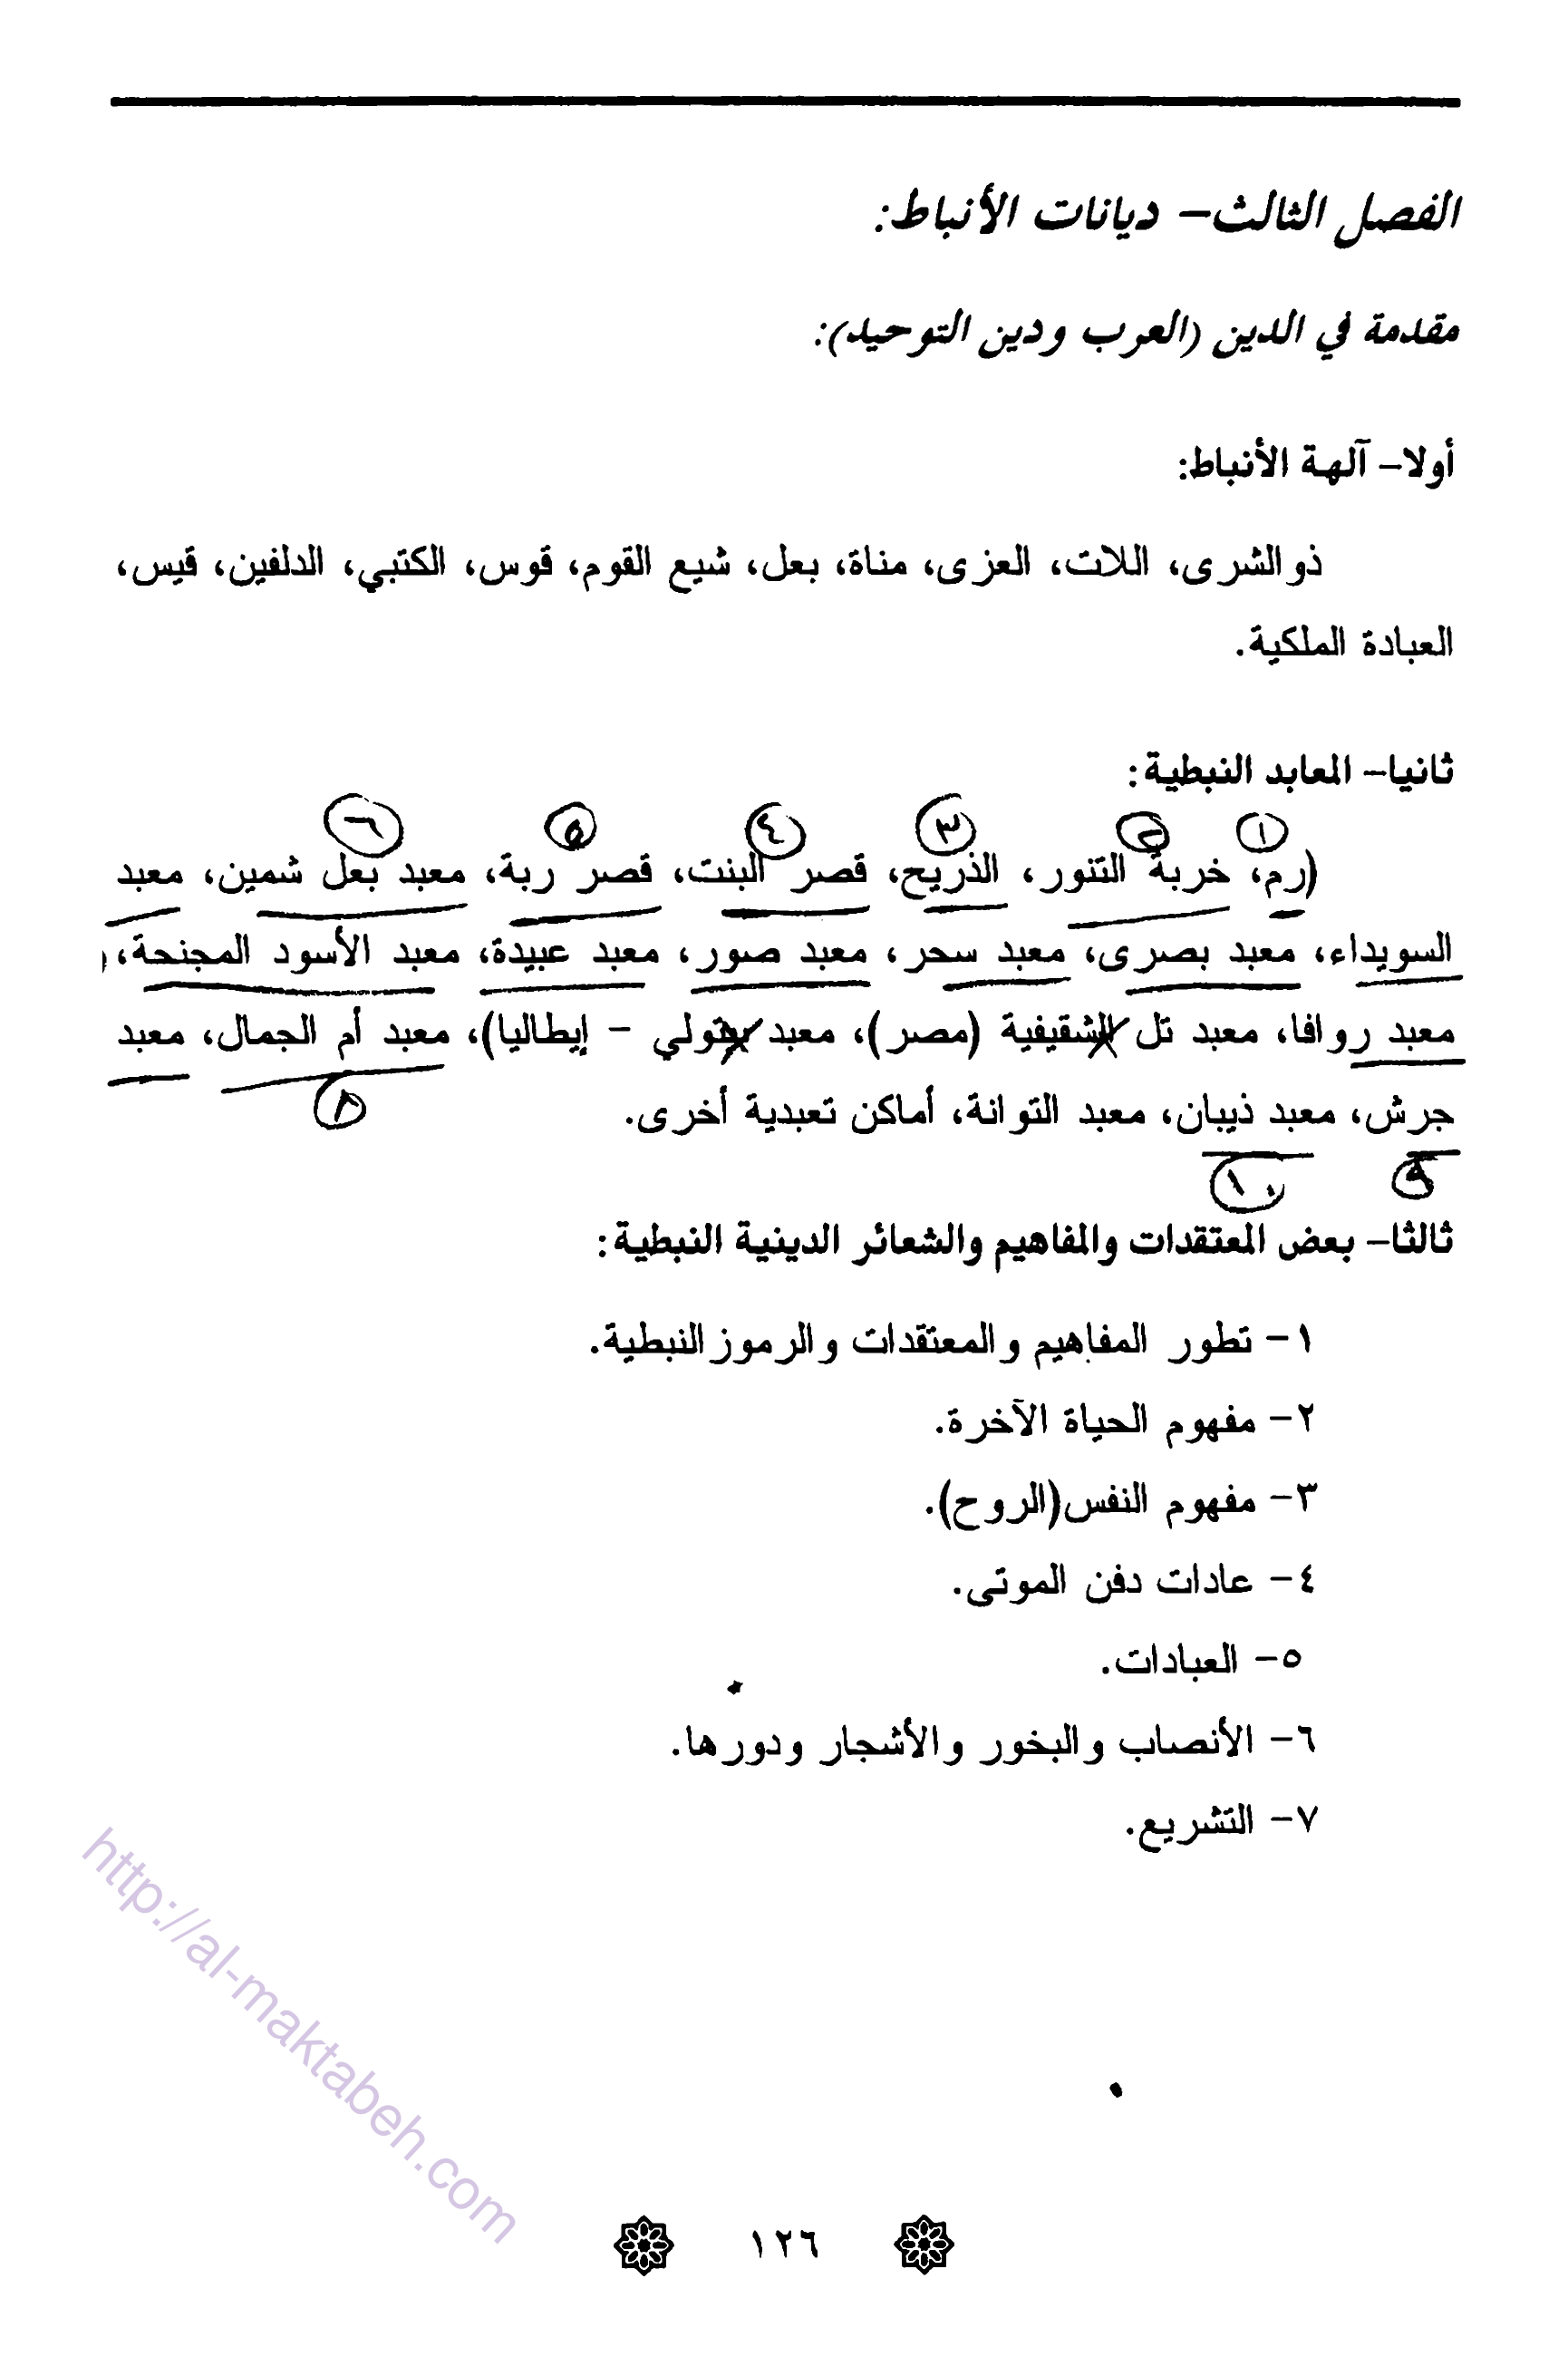 الفصل الثالث- ديانات الأنباط:
مقدمة في الدين (العرب ودين التوحيد):
أولا- آلهة الأنباط:
ذو الشرى، اللات، العزى، مناة، بعل، شيع القوم، قوس، الكتبي، الدلفين، قيس،
العبادة الملكية.
ثانيا- المعابد النبطية:
١ ٢ ٣ ٤ ٥ ٦
(رم، خربة التنور، الذريح، قصر البنت، قصر ربة، معبد بعل شمين، معبد
السويداء، معبد بصرى، معبد سحر، معبد صور، معبد عبيدة، معبد الأسود المجنحة،
معبد روافا، معبد تل الشقيفية (مصر)، معبد بتولي - إيطاليا)، معبد أم الجمال، معبد
٨
جرش، معبد ذيبان، معبد التوانة، أماكن تعبدية أخرى.
٩ ١٠
ثالثا- بعض المعتقدات والمفاهيم والشعائر الدينية النبطية:
١- تطور المفاهيم والمعتقدات والرموز النبطية.
٢- مفهوم الحياة الآخرة.
٣- مفهوم النفس(الروح).
٤- عادات دفن الموتى.
٥- العبادات.
٦- الأنصاب والبخور والأشجار ودورها.
٧- التشريع.
http://al-maktabeh.com
١٢٦